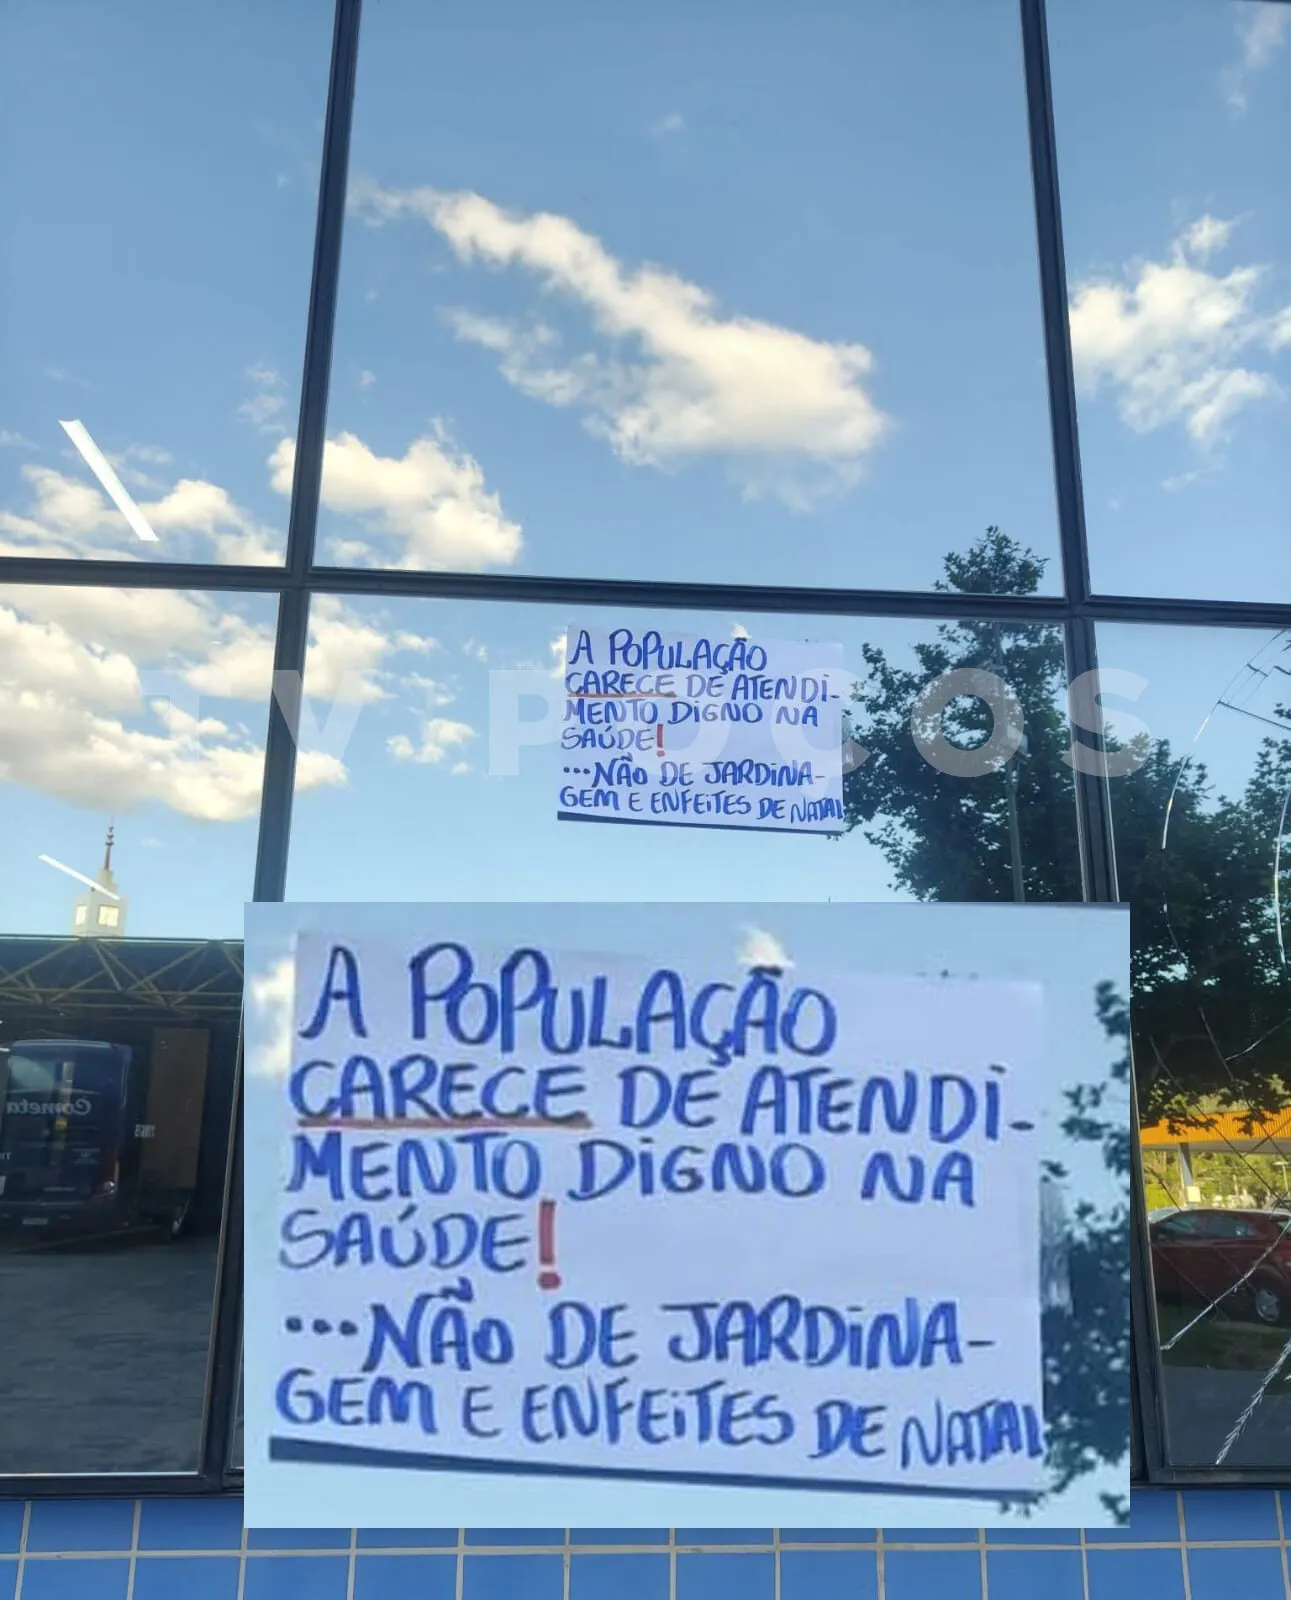 A POPULAÇÃO
CARECE DE ATENDI-
MENTO DIGNO NA
SAÚDE!
...NÃO DE JARDINA-
GEM E ENFEITES DE NATAL
TV POÇOS
A POPULAÇÃO
CARECE DE ATENDI-
MENTO DIGNO NA
SAÚDE!
...NÃO DE JARDINA-
GEM E ENFEITES DE NATAL
Cometa